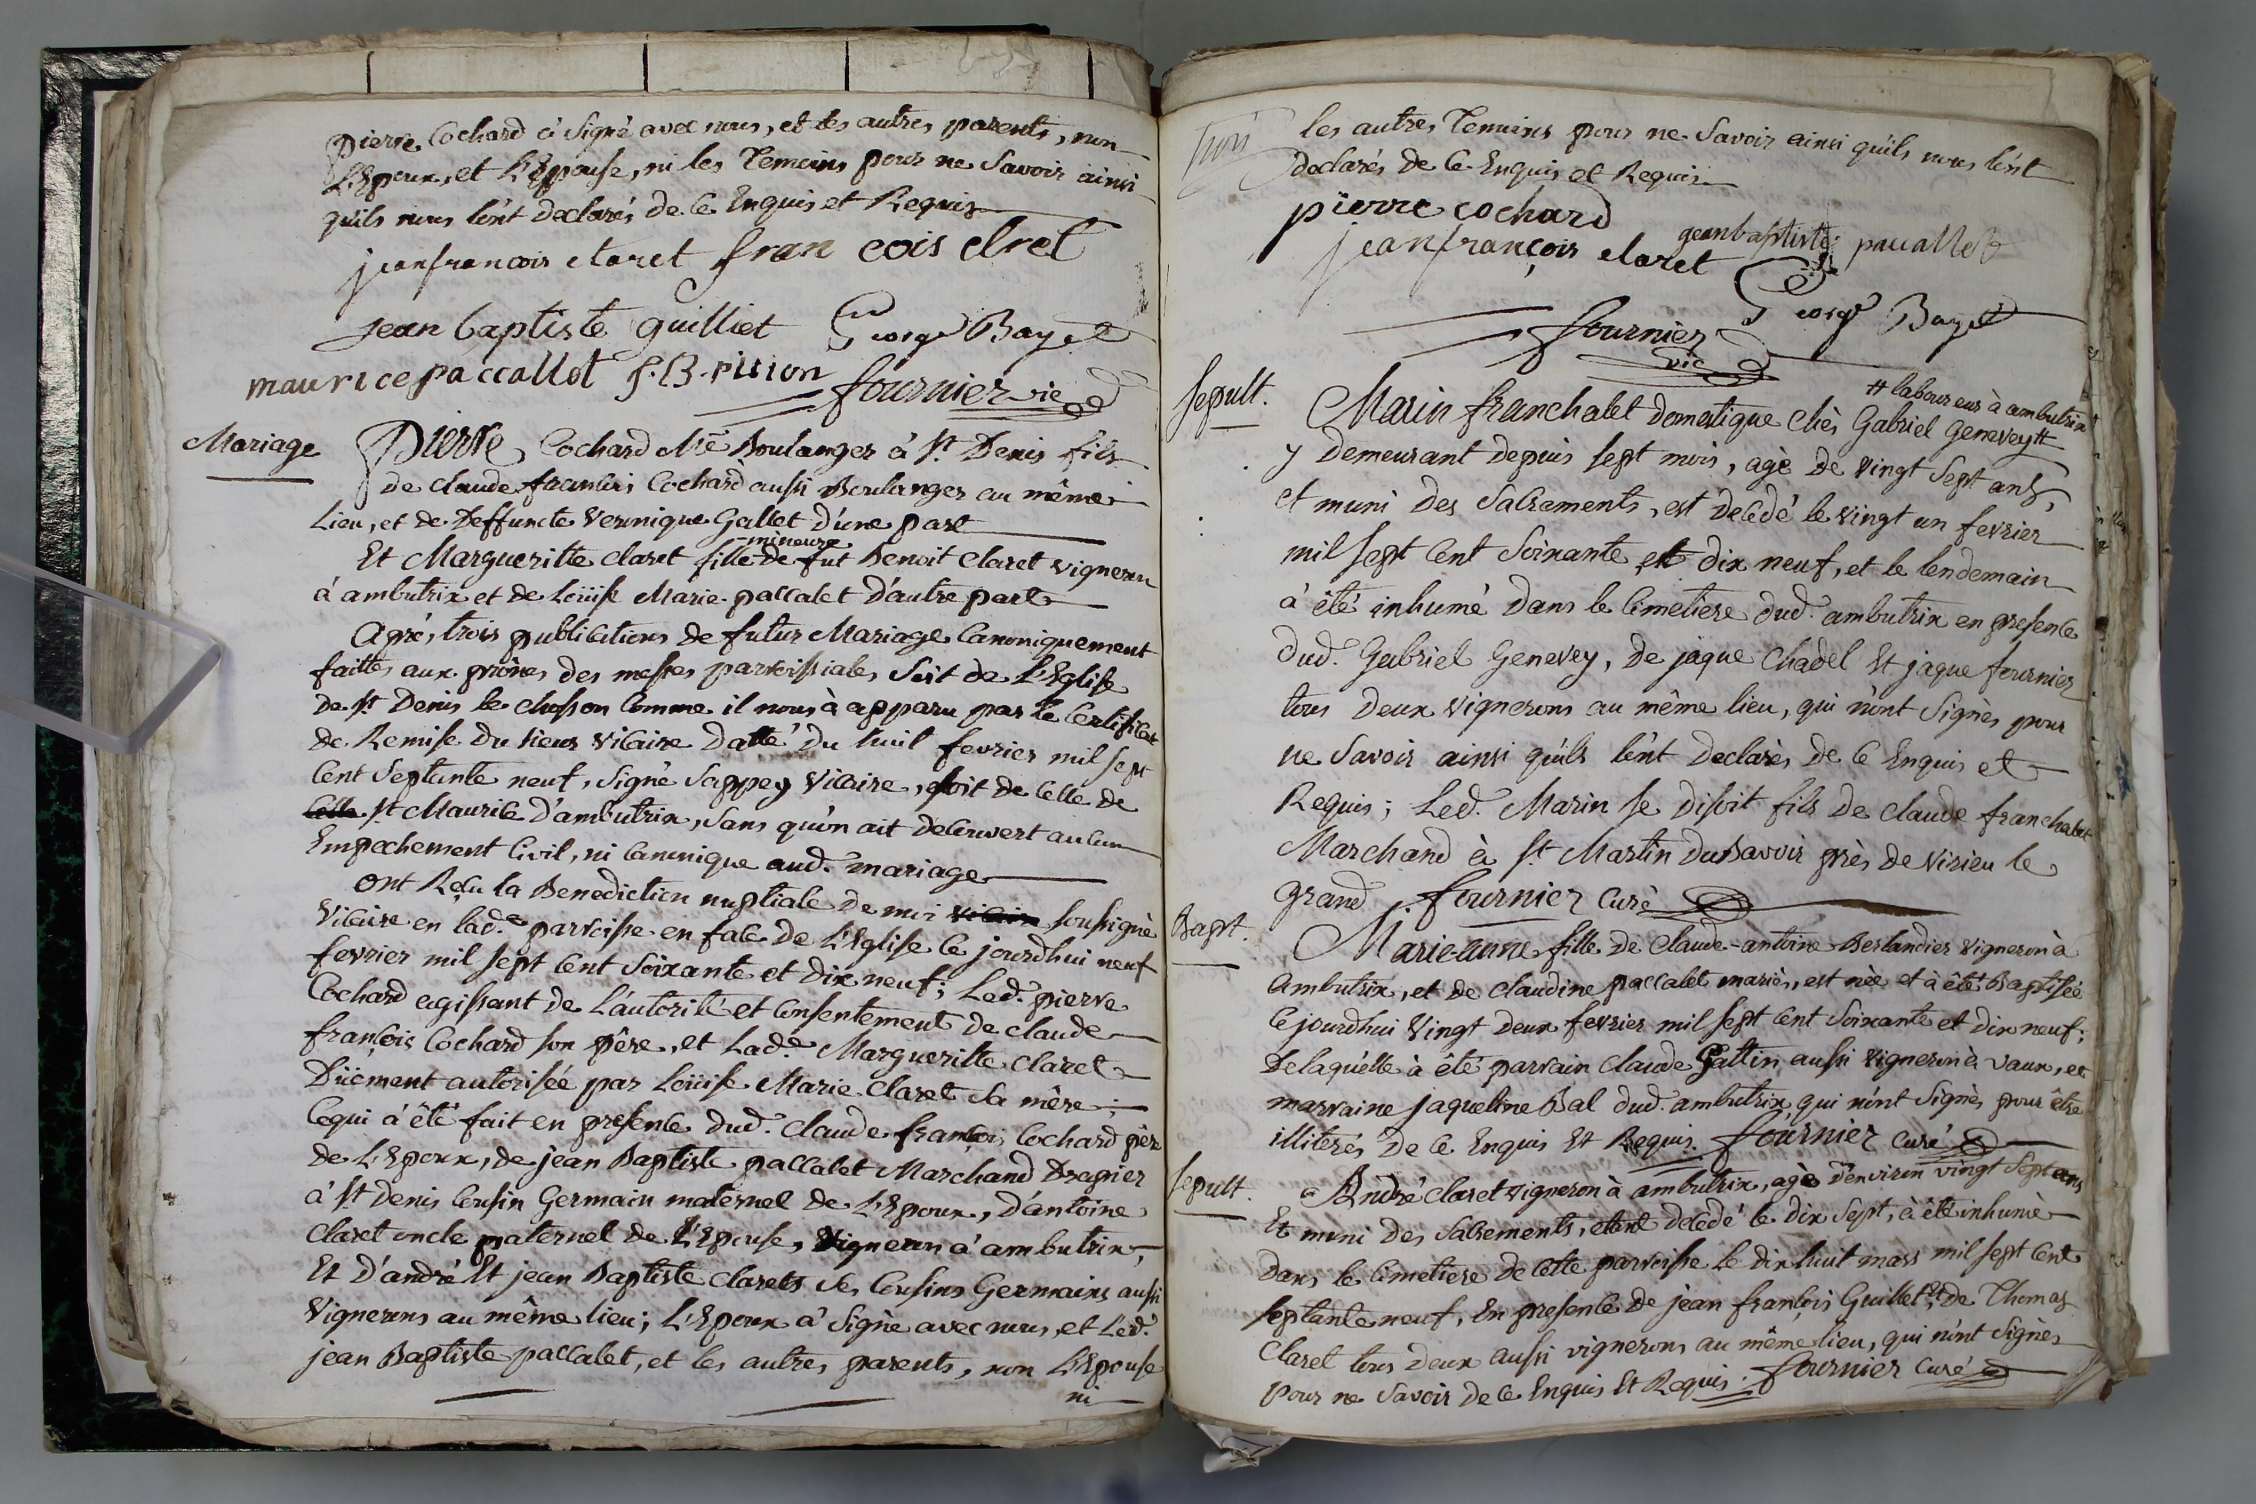 Pierre Cochard à Signé avec nous, et les autres parents, non
L'Epoux, et L'Epouse, ni les Temoins pour ne Savoir ainsi
qu'ils nous l'ont declarés de ce Enquis et Requis
jeanfrancois claret fran cois clret
jean baptiste guilliet George Bayet
maurice paccallot J. B. pition fournier vic
Mariage
Pierre Cochard Me Boulanger à St. Denis fils
de claude francois Cochard aussi Boulanger au même
Lieu, et de Deffuncte Veronique Gallet d'une part
mineure
Et Margueritte Claret fille de fut Benoit Claret vigneron
à ambutrix et de Loüise Marie paccalet d'autre part
Après trois publications de futur Mariage Canoniquement
faittes aux prônes des messes parroissiales Soit de L'Eglise
de St Denis le chosson Comme il nous à apparu par le Certificat
de Remise du sieur Vicaire datté du huit fevrier mil sept
Cent Septante neuf, Signé Sappey Vicaire, soit de Celle de
Celle St Maurice d'ambutrix, sans qu'on ait decouvert aucun
Empechement Civil, ni Canonique aud. mariage
Ont Reçu la Benediction nuptiale de moi vicaire soussigné
Vicaire en lad.e parroisse en face de L'Eglise ce jourdhui neuf
fevrier mil sept Cent Soixante et dix neuf; Led. pierre
Cochard agissant de L'autorité et Consentement de Claude
françois Cochard son père, et Lad.e Margueritte Claret
Dûement autorisée par Loüise Marie Claret sa mère;
Cequi à été fait en presence dud. Claude françois Cochard père
de L'Epoux, de jean Baptiste paccalet Marchand Drapier
à St denis Cousin Germain maternel de L'Epoux, d'antoine
Claret oncle paternel de L'Epouse, Vigneron à ambutrix,
Et d'andré Et jean Baptiste Clarets ses Cousins Germains aussi
Vignerons au même lieu; L'Epoux à Signé avec nous, et Led.
jean Baptiste paccalet, et les autres parents, non L'Epouse
ni
les autres Temoins pour ne Savoir ainsi qu'ils nous l'ont
declarés de Ce Enquis et Requis
pierre cochard
jeanfrançois claret jeanbaptiste paccallet
George Bayet
fournier
vic
Sepult.
# laboureur à ambutrix
Marin franchalet domestique chès Gabriel Genevey #
y Demeurant depuis sept mois, agé de Vingt Sept ans,
et muni des Sacrements, est decedé le vingt un fevrier
mil sept Cent Soixante et dix neuf, et le lendemain
à été inhumé dans le Cimetiere dud. ambutrix en presence
dud. Gabriel Genevey, de jaque Chadel Et jaque fournier
tous Deux vignerons au même lieu, qui n'ont Signés pour
ne Savoir ainsi qu'ils l'ont declarés de ce Enquis et
Requis; Led. Marin se disoit fils de Claude franchalet
Marchand à St Martin du Bavoir près de Virieu le
grand. fournier Curé
Bapt.
Marie-anne fille de Claude-antoine Berlandier vigneron à
Ambutrix, et de Claudine paccalet mariés, est née et à été Baptisée
Cejourdhui Vingt deux fevrier mil sept Cent Soixante et dix neuf;
De laquelle à été parrain Claude Gattin aussi vigneron à Vaux, et
marraine jaqueline Bal dud. ambutrix, qui n'ont Signés pour être
illiterés de Ce Enquis Et Requis. fournier Curé
Sepult.
André Claret vigneron à ambutrix, agé d'environ vingt Sept ans
Et muni des Sacrements, étant decedé le dix Sept, à été inhumé
Dans le Cimetiere de Cette parroisse le dix huit mars mil sept Cent
Septante neuf, En presence de jean françois Guillet, et de Thomas
Claret tous deux aussi vignerons au même lieu, qui n'ont Signés
pour ne Savoir de Ce Enquis Et Requis. fournier Curé